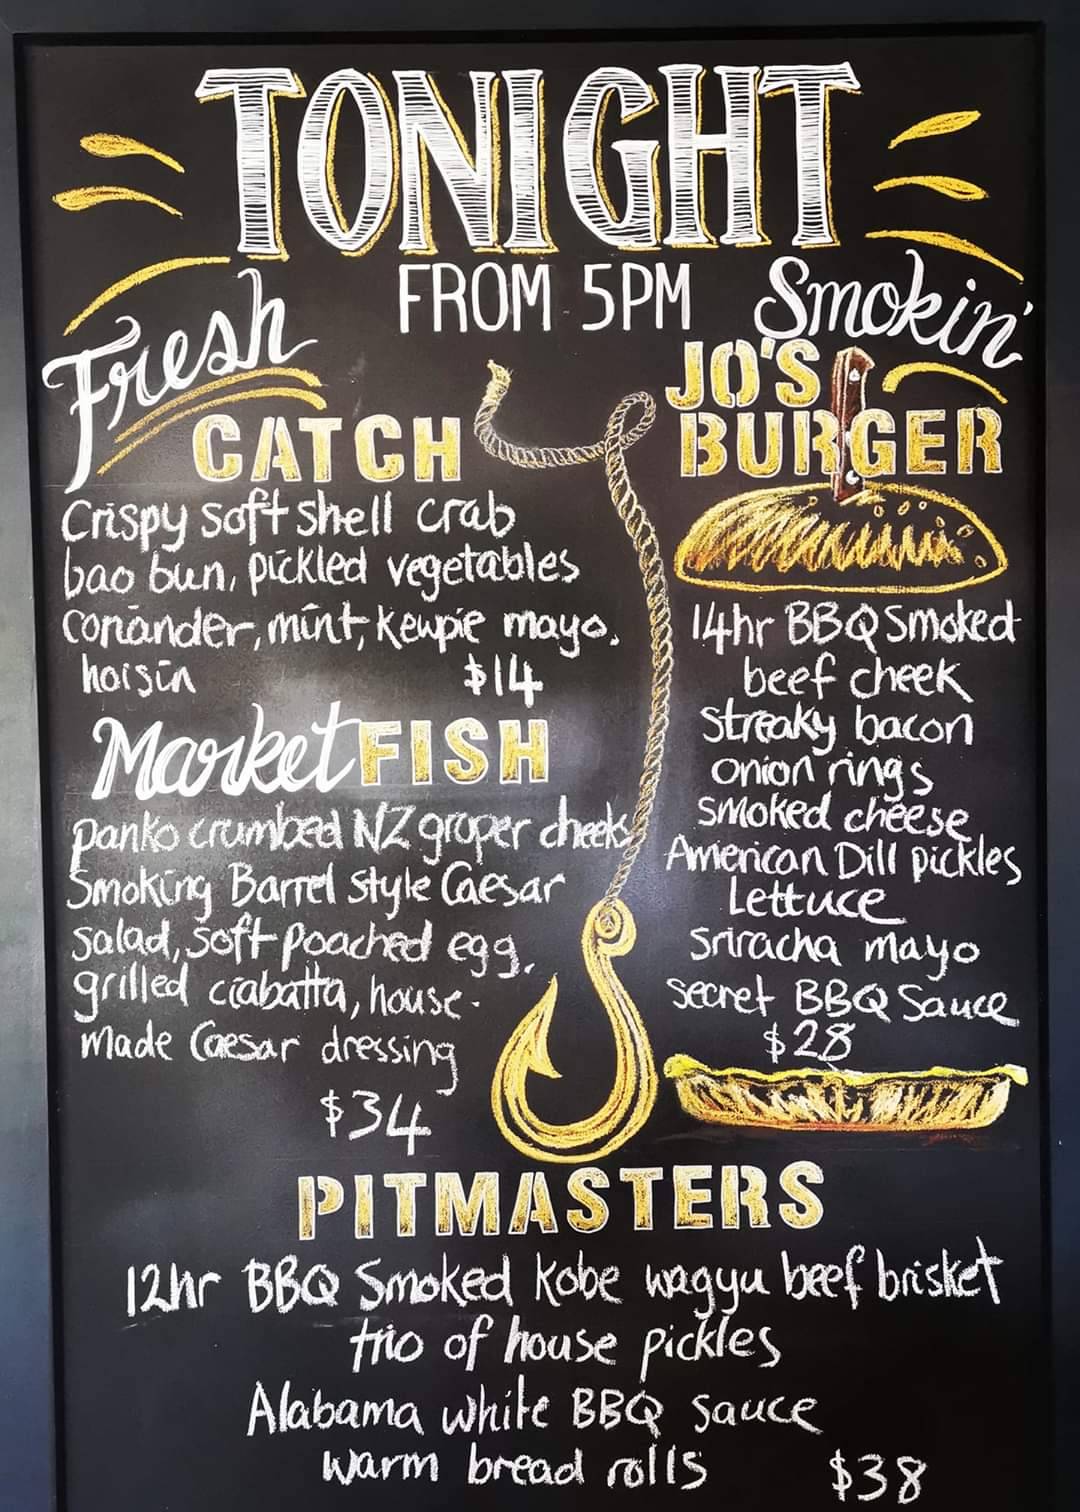 TONIGHT
FROM 5PM
Fresh
CATCH
Crispy soft shell crab
bao bun, pickled vegetables
coriander, mint, Kewpie mayo,
hoisin $14
Market FISH
panko crumbed NZ groper cheeks
Smoking Barrel style Caesar
salad, soft poached egg,
grilled ciabatta, house-
made Caesar dressing
$34
Smokin'
JO'S
BURGER
14hr BBQ Smoked
beef cheek
Streaky bacon
onion rings
smoked cheese
American Dill pickles
Lettuce
sriracha mayo
secret BBQ Sauce
$28
PITMASTERS
12hr BBQ Smoked Kobe wagyu beef brisket
trio of house pickles
Alabama white BBQ sauce
warm bread rolls $38